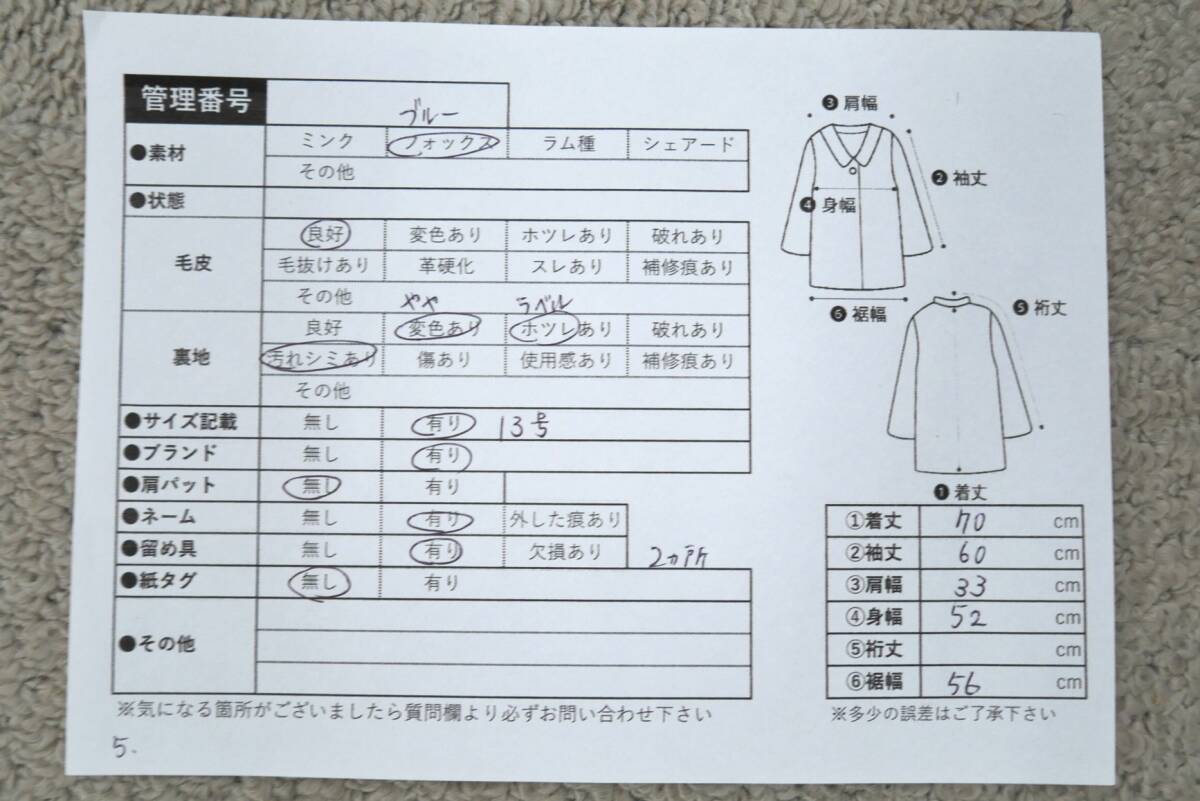 管理番号
ブルー
●素材 ミンク フォックス ラム種 シェアード
その他
●状態
毛皮 良好 変色あり ホツレあり 破れあり
毛抜けあり 革硬化 スレあり 補修痕あり
その他
やや ラベル
裏地 良好 変色あり ホツレあり 破れあり
汚れシミあり 傷あり 使用感あり 補修痕あり
その他
●サイズ記載 無し 有り 13号
●ブランド 無し 有り
●肩パット 無し 有り
●ネーム 無し 有り 外した痕あり
●留め具 無し 有り 欠損あり 2ヵ所
●紙タグ 無し 有り
●その他
※気になる箇所がございましたら質問欄より必ずお問い合わせ下さい
5.
❸肩幅
❷袖丈
❹身幅
❻裾幅
❺裄丈
❶着丈
①着丈 70 cm
②袖丈 60 cm
③肩幅 33 cm
④身幅 52 cm
⑤裄丈 cm
⑥裾幅 56 cm
※多少の誤差はご了承下さい